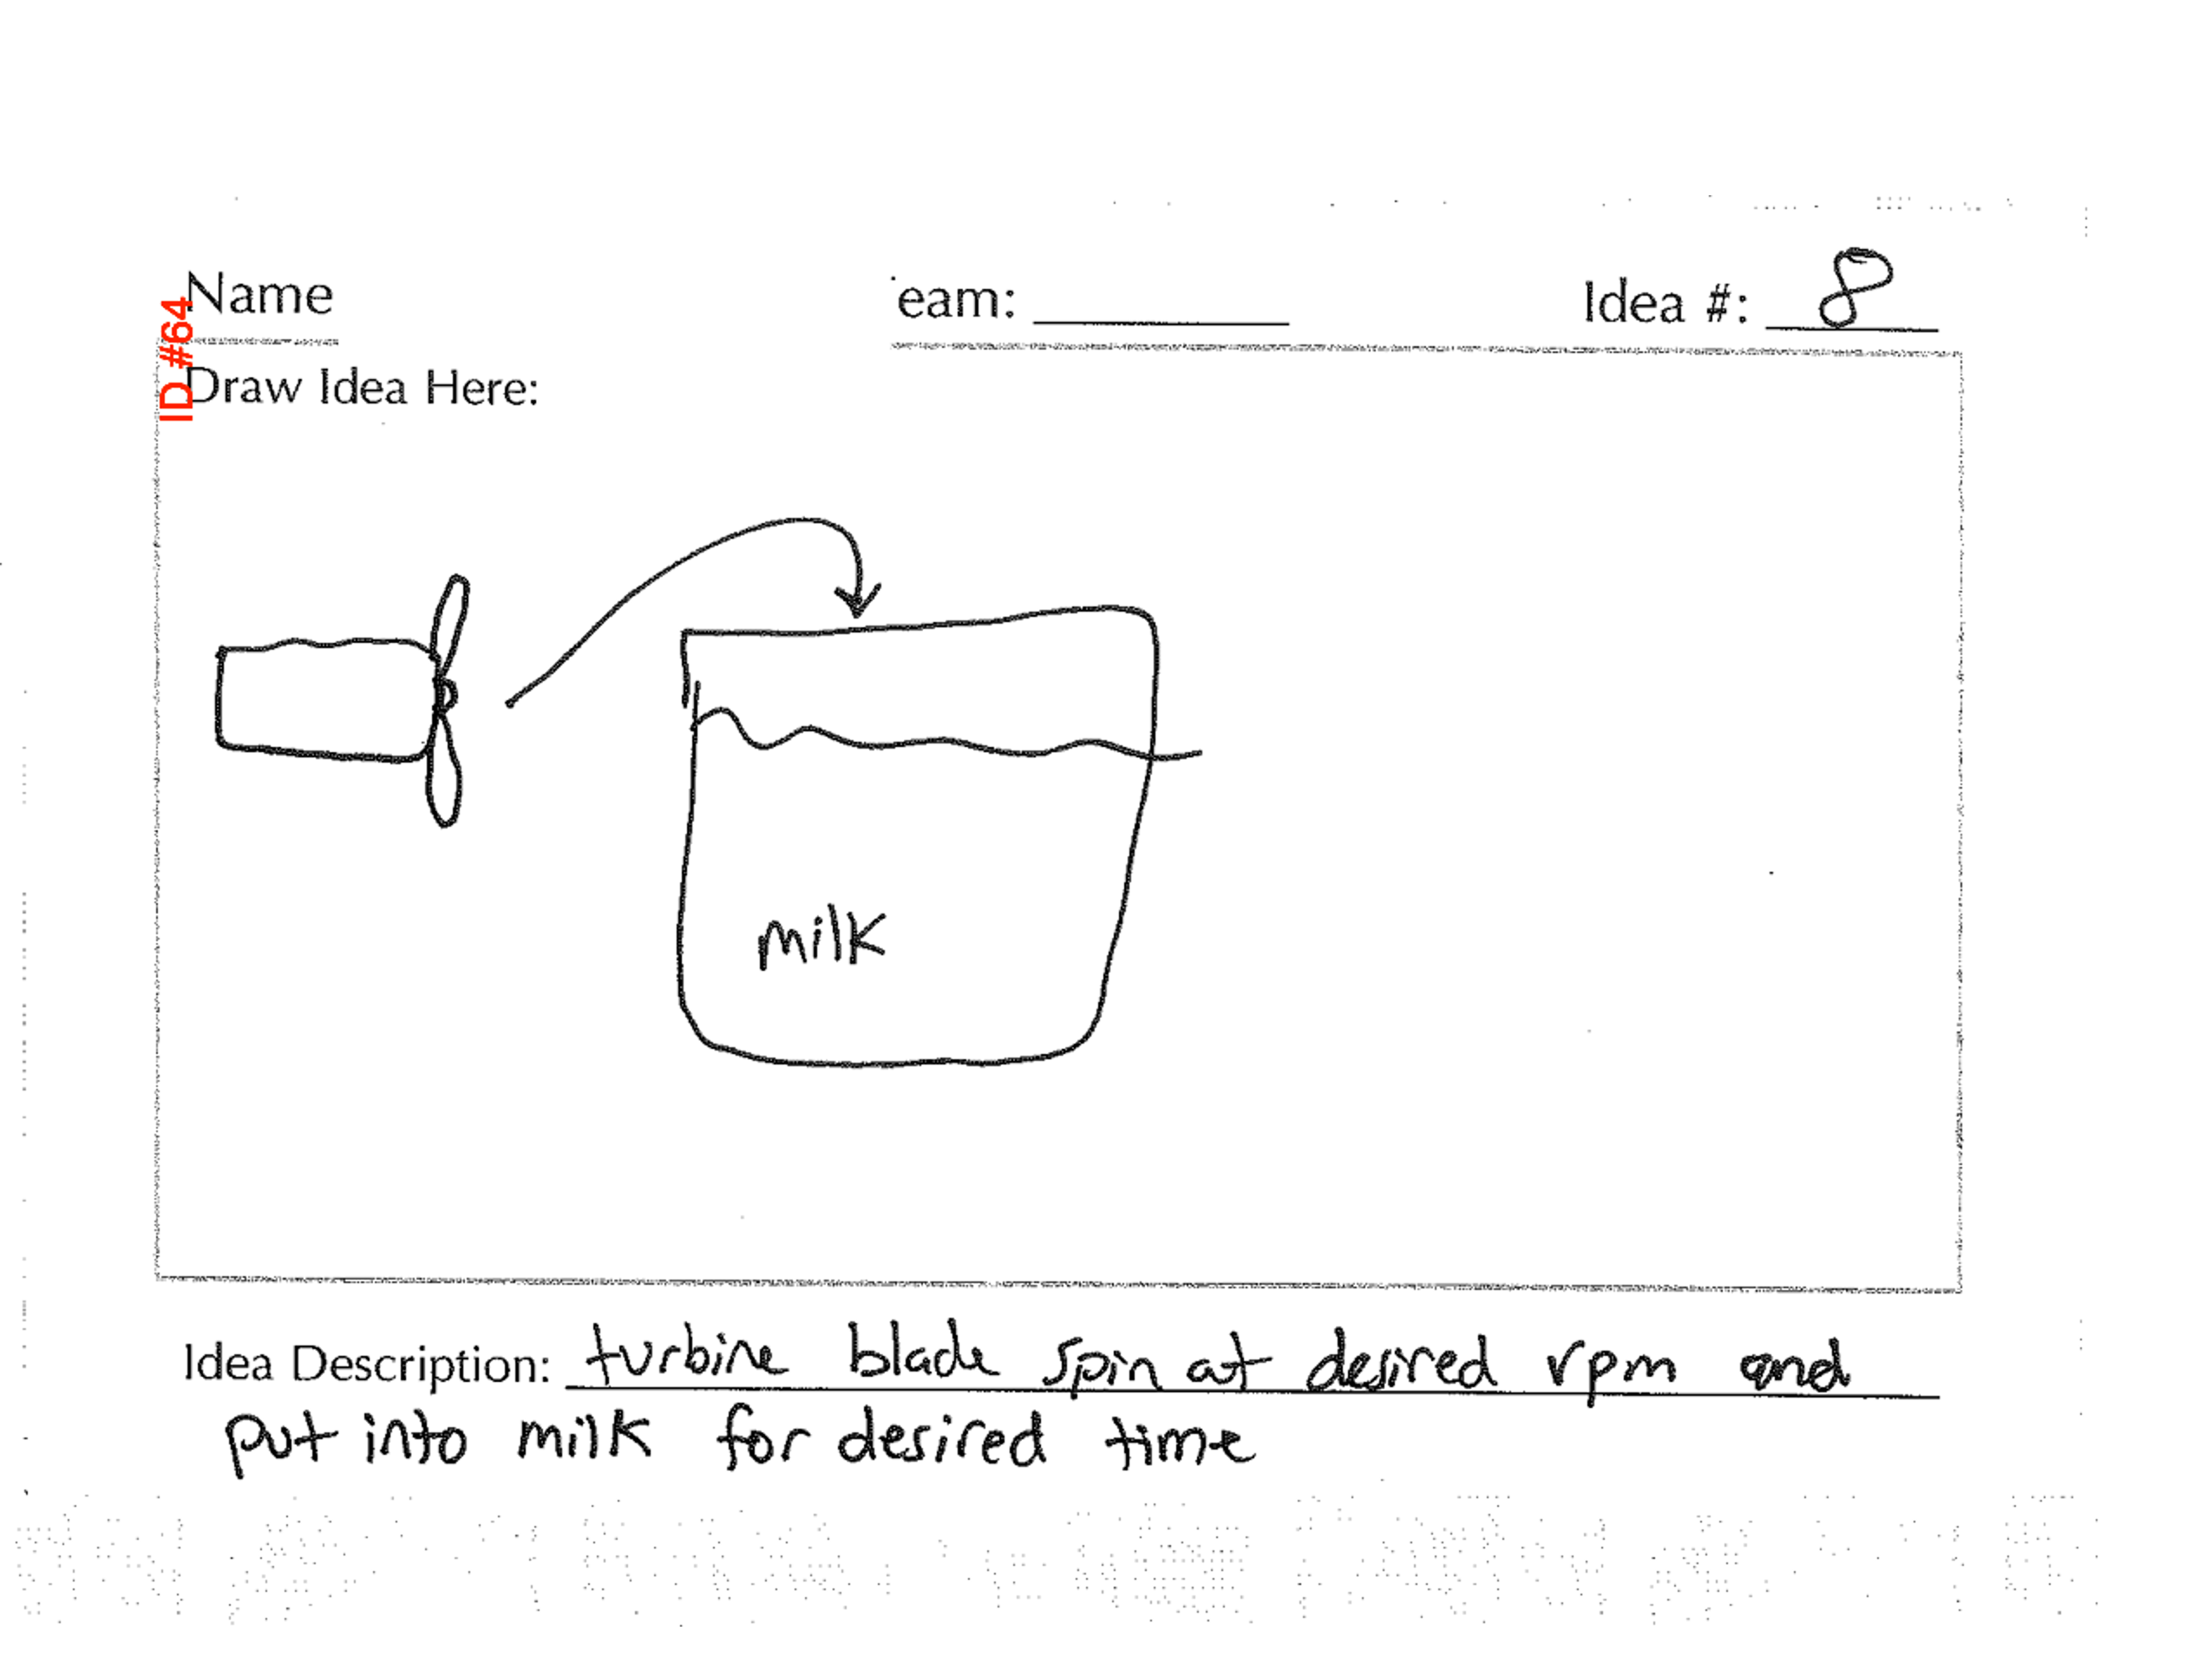 Name eam: Idea #: 8
ID #64
Draw Idea Here:
milk
Idea Description: turbine blade spin at desired rpm and
put into milk for desired time